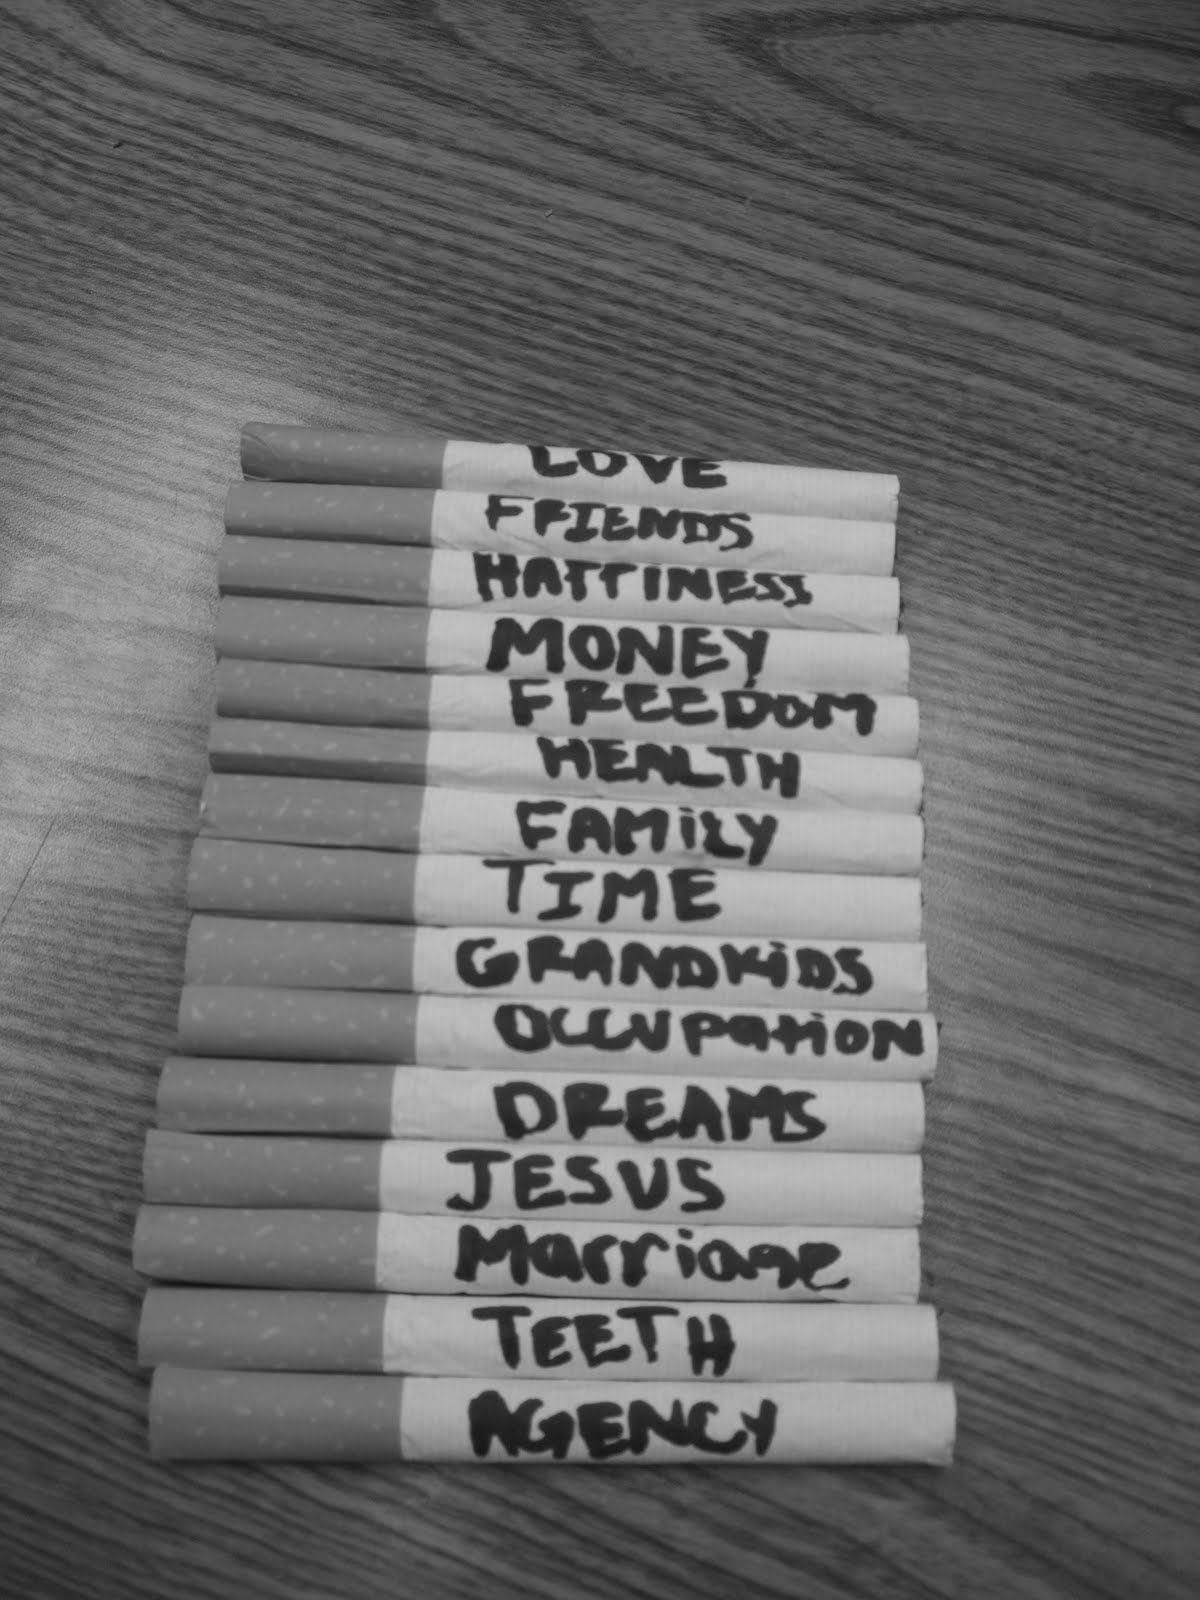 LOVE
FRIENDS
HAPPINESS
MONEY
FREEDOM
HEALTH
FAMiLY
TIME
GRANDKiDS
OCCUPatiON
DREAMS
JESUS
Marriage
TEETH
AGENCY